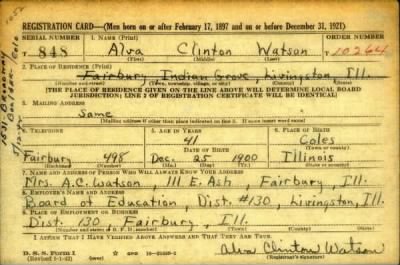 REGISTRATION CARD—(Men born on or after February 17, 1897 and on or before December 31, 1921)
SERIAL NUMBER 1. NAME (Print) ORDER NUMBER
848 Alva Clinton Watson 10264
(First) (Middle) (Last)
2. PLACE OF RESIDENCE (Print)
Fairbury Indian Grove, Livingston, Ill.
(Number and street) (Town, township, village, or city) (County) (State)
[THE PLACE OF RESIDENCE GIVEN ON THE LINE ABOVE WILL DETERMINE LOCAL BOARD
JURISDICTION; LINE 2 OF REGISTRATION CERTIFICATE WILL BE IDENTICAL]
3. MAILING ADDRESS
Same
[Mailing address if other than place indicated on line 2. If same insert word same]
4. TELEPHONE 5. AGE IN YEARS 6. PLACE OF BIRTH
41 Coles
DATE OF BIRTH (Town or county)
Fairbury 498 Dec. 25 1900 Illinois
(Exchange) (Number) (Mo.) (Day) (Yr.) (State or country)
7. NAME AND ADDRESS OF PERSON WHO WILL ALWAYS KNOW YOUR ADDRESS
Mrs. A.C. Watson 111 E. Ash, Fairbury, Ill.
8. EMPLOYER'S NAME AND ADDRESS
Board of Education, Dist. #130, Livingston, Ill.
9. PLACE OF EMPLOYMENT OR BUSINESS
Dist. 130 Fairbury, Ill.
(Number and street or R. F. D. number) (Town) (County) (State)
I AFFIRM THAT I HAVE VERIFIED ABOVE ANSWERS AND THAT THEY ARE TRUE.
D. S. S. Form 1 (over) Alva Clinton Watson
(Revised 1-1-42) (Registrant's signature)